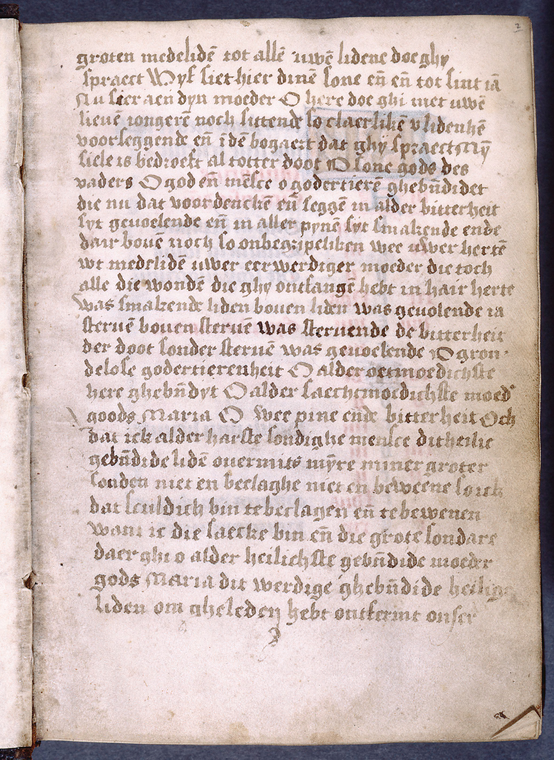 2
groten medelidē tot allē uwē lidene doe ghy
spraect Wyf siet hier dinē sone eñ eñ tot sint iā
Nu siet aen dyn moeder O here doe ghi met uwē
lieuē iongerē noch sittende so claerlikē v lidenhē
voorseggende eñ ī dē hogaert dat ghy spraect My
siele is bedroeft al totter doot O sone gods des
vaders O god eñ mēsce o godertierē ghebn̄didet
die nu dat voordenckē eñ seggē in alder bitterheit
syt geuoelende eñ in aller pynē syt smakende ende
dair bouē noch so onbegripeliken wee uwer hertē
wt medelidē uwer eerwerdiger moeder die toch
alle die wondē die ghy ontfangē hebt in hair herte
was smakende liden bouen liden was geuolende ia
steruē bouen steruē was steruende de bitterheit
der doot sonder steruē was geuoelende O gron
delose godertierenheit O alder oetmoedichste
here ghebn̄dyt O alder saechtmoedichste moed'
goods Maria O wee pine ende bitterheit Och
dat ick alder harste sondighe mensce dit heilie
gebn̄dide lidē ouermits myre miner groter
sonden niet en beclaghe niet en beweene so ick
dat sculdich bin te beclagen eñ te bewenen
want ic die saecke bin eñ die grote sondare
daer ghi o alder heilichste gebn̄dide moeder
gods Maria dit werdige ghebn̄dide heilige
liden om gheleden hebt ontfermt onser